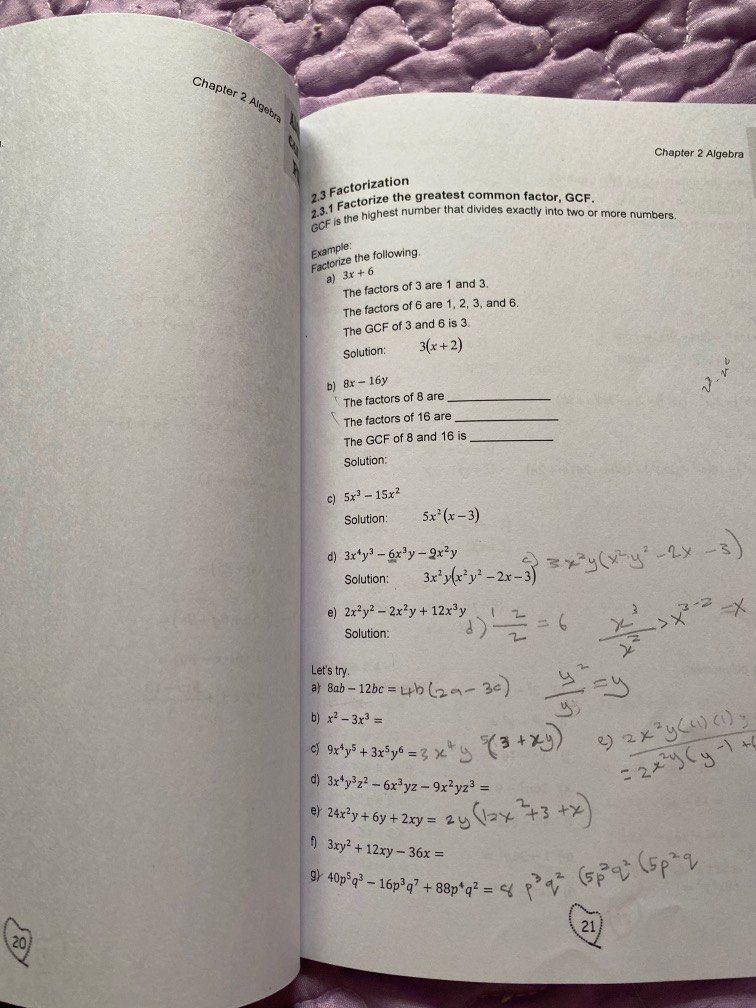 Chapter 2 Algebra
20
Chapter 2 Algebra
2.3 Factorization
2.3.1 Factorize the greatest common factor, GCF.
GCF is the highest number that divides exactly into two or more numbers.
Example:
Factorize the following.
a) 3x + 6
The factors of 3 are 1 and 3.
The factors of 6 are 1, 2, 3, and 6.
The GCF of 3 and 6 is 3.
Solution: 3(x + 2)
b) 8x – 16y
The factors of 8 are
The factors of 16 are
The GCF of 8 and 16 is
Solution:
c) 5x³ – 15x²
Solution: 5x²(x – 3)
d) 3x⁴y³ – 6x³y – 9x²y
c) 3x²y(x²y² – 2x – 3)
Solution: 3x²y(x²y² – 2x – 3)
e) 2x²y² – 2x²y + 12x³y
Solution:
d) 12/2 = 6
x³/x² > x³⁻² = x
Let's try.
y²/y = y
a) 8ab – 12bc = 4b(2a – 3c)
b) x² – 3x³ =
c) 9x⁴y⁵ + 3x⁵y⁶ = 3x⁴y⁵(3 + xy)
e) 2x²y(1)(1)
= 2x²y(y – 1 +
d) 3x⁴y³z² – 6x³yz – 9x²yz³ =
e) 24x²y + 6y + 2xy = 2y(12x² + 3 + x)
f) 3xy² + 12xy – 36x =
g) 40p⁵q³ – 16p³q⁷ + 88p⁴q² = 8p³q² (5p³q² (5p²q
21